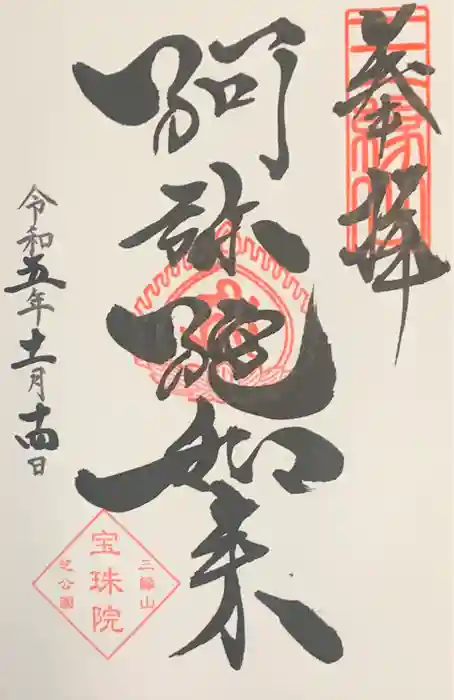 奉拝
阿弥陀如来
令和五年十一月十四日
三縁山
宝珠院
芝公園